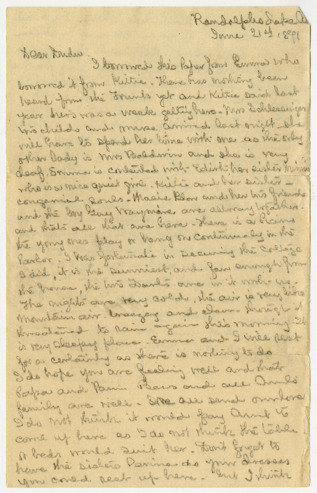 June 21st, 1891
I borrowed this paper from Emma who
borrowed it from Kittie. There has nothing been
heard from the trunks yet and Kittie said last
year hers was a week getting here. Mrs Schlesinger
two childs and nurse arrived last night. She
will have to spend her time with me as the only
other lady is Mrs Baldwin and she is very
deaf. Emma is contented with Edith, her sister Minnie
who is a nice quiet girl. Kittie and her sister
congenial souls.
and the boy Guy Waymire are
and that's all that are here. There is a Piano
the young ones play or bang on continuously in the
Parlor. I was fortunate in securing the Cottage
I did, it is the sunniest and far enough from
the house, the two are in it with us.
The nights are very cold, the air is very
mountain air, breezy and
threatened to rain again this morning it
is very sleepy place. Emma and I will rest
for a certainty as there is nothing to do
I do hope you are feeling well and that
Papa and and all Aunt's
family are well. We all send our love
I do not think it would pay Aunt to
come up here as I do not think the table
or beds would suit her. Don't forget to
have the do your dresses
you could rest up here. But I think